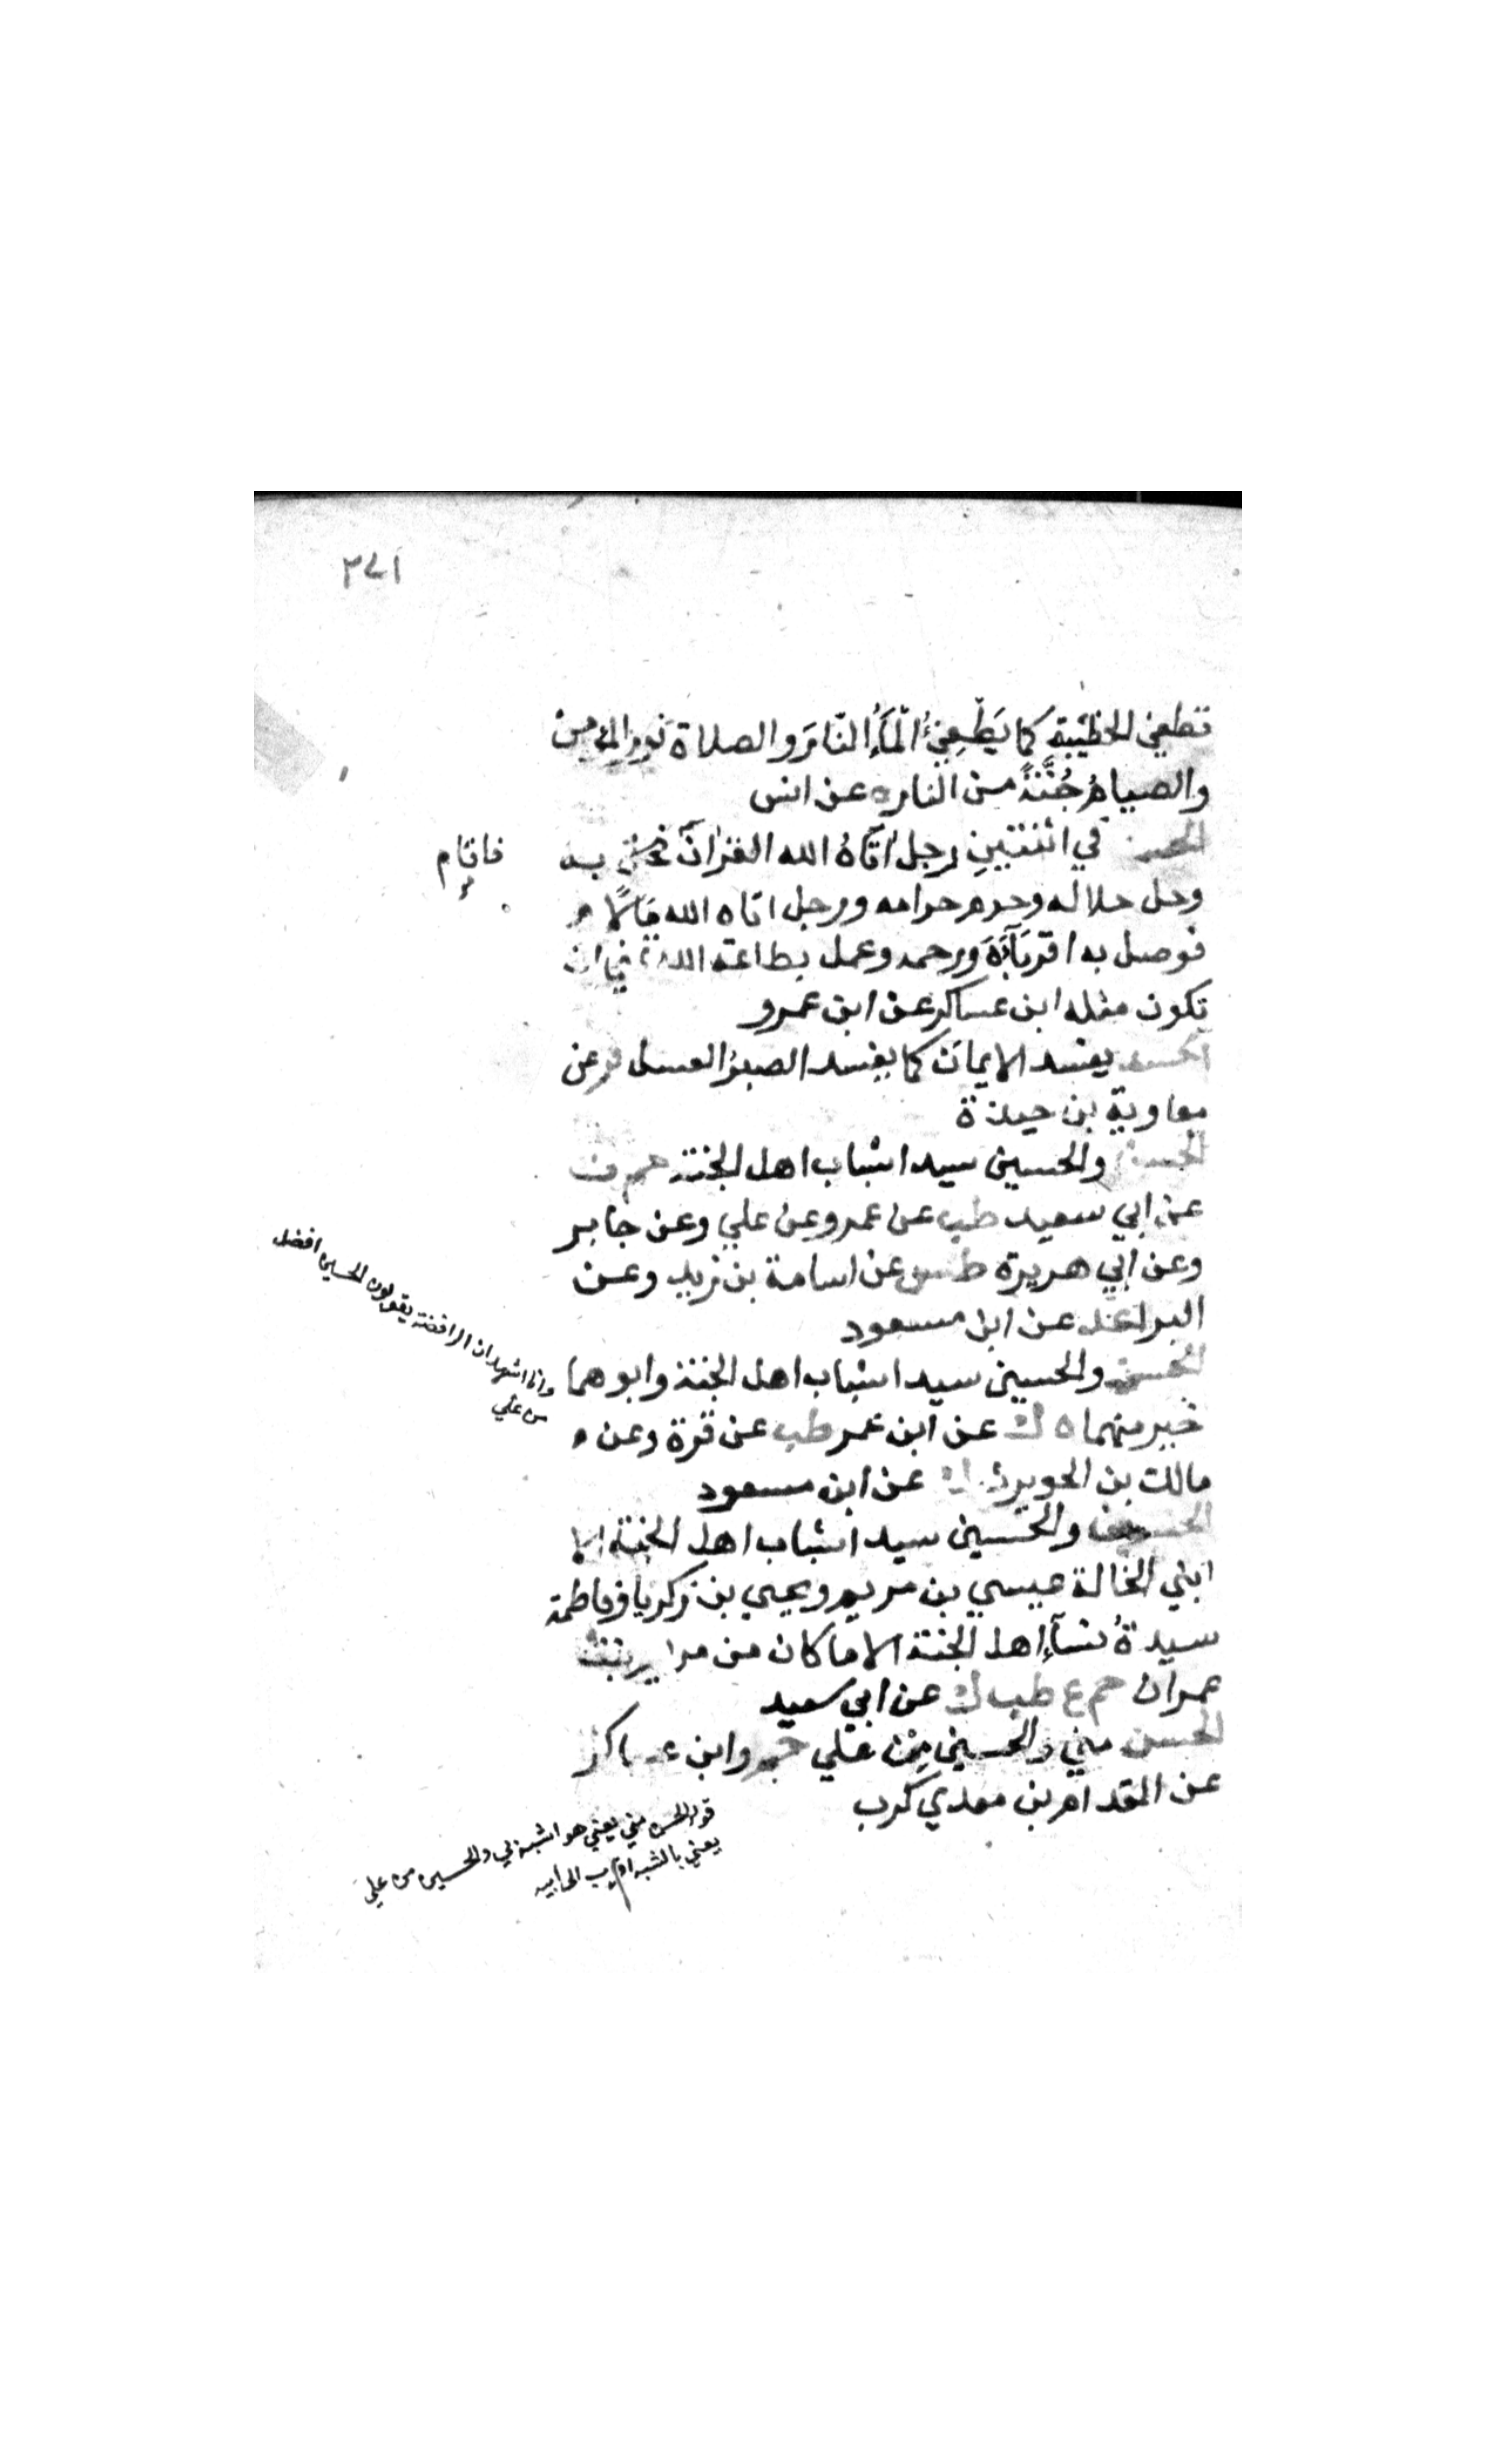 ٣٧١
تطفئ الخطيئة كما يَطْفِئُ الْمَآءُ النّارَ والصلاة نور المؤمن
والصيامُ جُنَّةٌ من النار ه عن انس
الحسد في اثنتينِ رجل اتَاهُ الله القرانَ به
فاقام
وحل حلاله وحرم حرامه ورجل اتاه الله مَالًا
فوصل به اقربَآءَهَ ورحمه وعمل بطاعة الله ان
تكون مثله ابن عساكر عن ابن عمرو
الحسد يفسد الايمان كما يفسد الصبرُ العسل فر عن
معاوية بن حيدة
الحسن والحسين سيدا شباب اهل الجنة حم ت
عن ابي سعيد طب عن عمر وعن علي وعن جابر
وعن ابي هريرة طس عن اسامة بن زيد وعن
البرا عد عن ابن مسعود
الحسن والحسين سيدا شباب اهل الجنة وابوهما
وانا اشهد ان الرافضة يقولون الحسين افضل
من علي
خير منهما ه ك عن ابن عمر طب عن قرة وعن
مالك بن الحويرث ك عن ابن مسعود
الحسن والحسين سيدا شباب اهل الجنة الا
ابني الخالة عيسي بن مريم ويحيي بن زكريا وفاطمة
سيدةُ نسآءِ اهل الجنة الا ما كان من مريم بنت
عمران حم ع طب ك عن ابي سعيد
الحسن مني والحسين مِنْ عَلي حم وابن عساكر
عن المقدام بن معدي كرب
قوله الحسن مني يعني هو اشبه بي والحسين من علي
يعني بالشبه اقرب الى ابيه